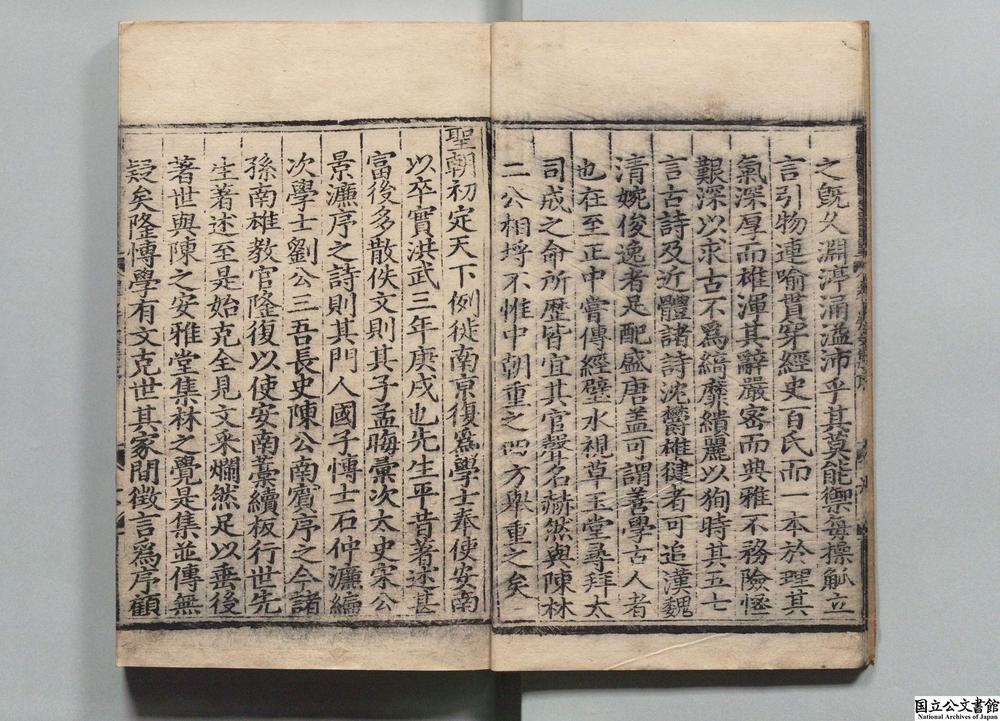 之既久淵渟涌溢沛乎其莫能禦每操觚立
言引物連喻貫穿經史百氏而一本於理其
氣深厚而雄渾其辭嚴密而典雅不務險怪
艱深以求古不爲綺靡繢麗以狥時其五七
言古詩及近體諸詩沈欝雄健者可追漢魏
清婉俊逸者足配盛唐盖可謂善學古人者
也在至正中嘗傳經壁水視草玉堂尋拜太
司成之命所歷皆宜其官聲名赫然與陳林
二公相埒不惟中朝重之四方舉重之矣
聖朝初定天下例徙南京復爲學士奉使安南
以卒實洪武三年庚戌也先生平昔著述甚
富後多散佚文則其子孟晦彙次太史宋公
景濂序之詩則其門人國子慱士石仲濂編
次學士劉公三吾長史陳公南賔序之今諸
孫南雄教官隆復以使安南藁續板行世先
生著述至是始克全見文采爛然足以垂後
著世與陳之安雅堂集林之覺是集並傳無
疑矣隆慱學有文克世其家間徵言爲序顧
国立公文書館
National Archives of Japan